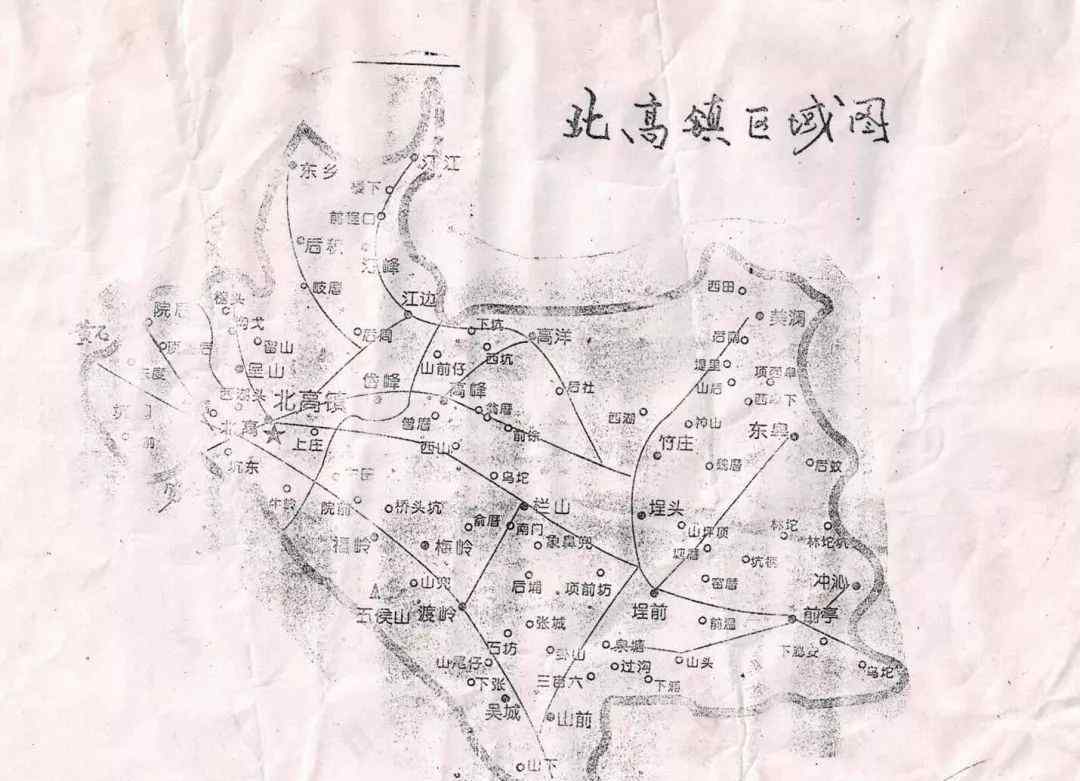 北高镇区域图
东乡
汀江
前程口
后积
汀峰
岐厝
江边
后周
下坑
高洋
西坑
山前仔
后社
岱峰
高峰
翁厝
曾厝
前徐
西山
院后
留山
呈山
西湖头
北高镇
北高
上庄
坑东
西田
美澜
后南
堤里
山后
西湖
冲山
竹庄
东皋
后蚊
魏厝
乌坨
栏山
埕头
山坪顶
林坨
林坨坑
院前
桥头坑
俞厝
南门
象鼻兜
福岭
梅岭
坑机
窑厝
冲沁
山兜
后埔
项前坊
埕前
前厝
前亭
五侯山
渡岭
张城
石坊
卦山
泉塘
过沟
山头
乌坨
山尾仔
下张
三亩六
吴城
山前
山下